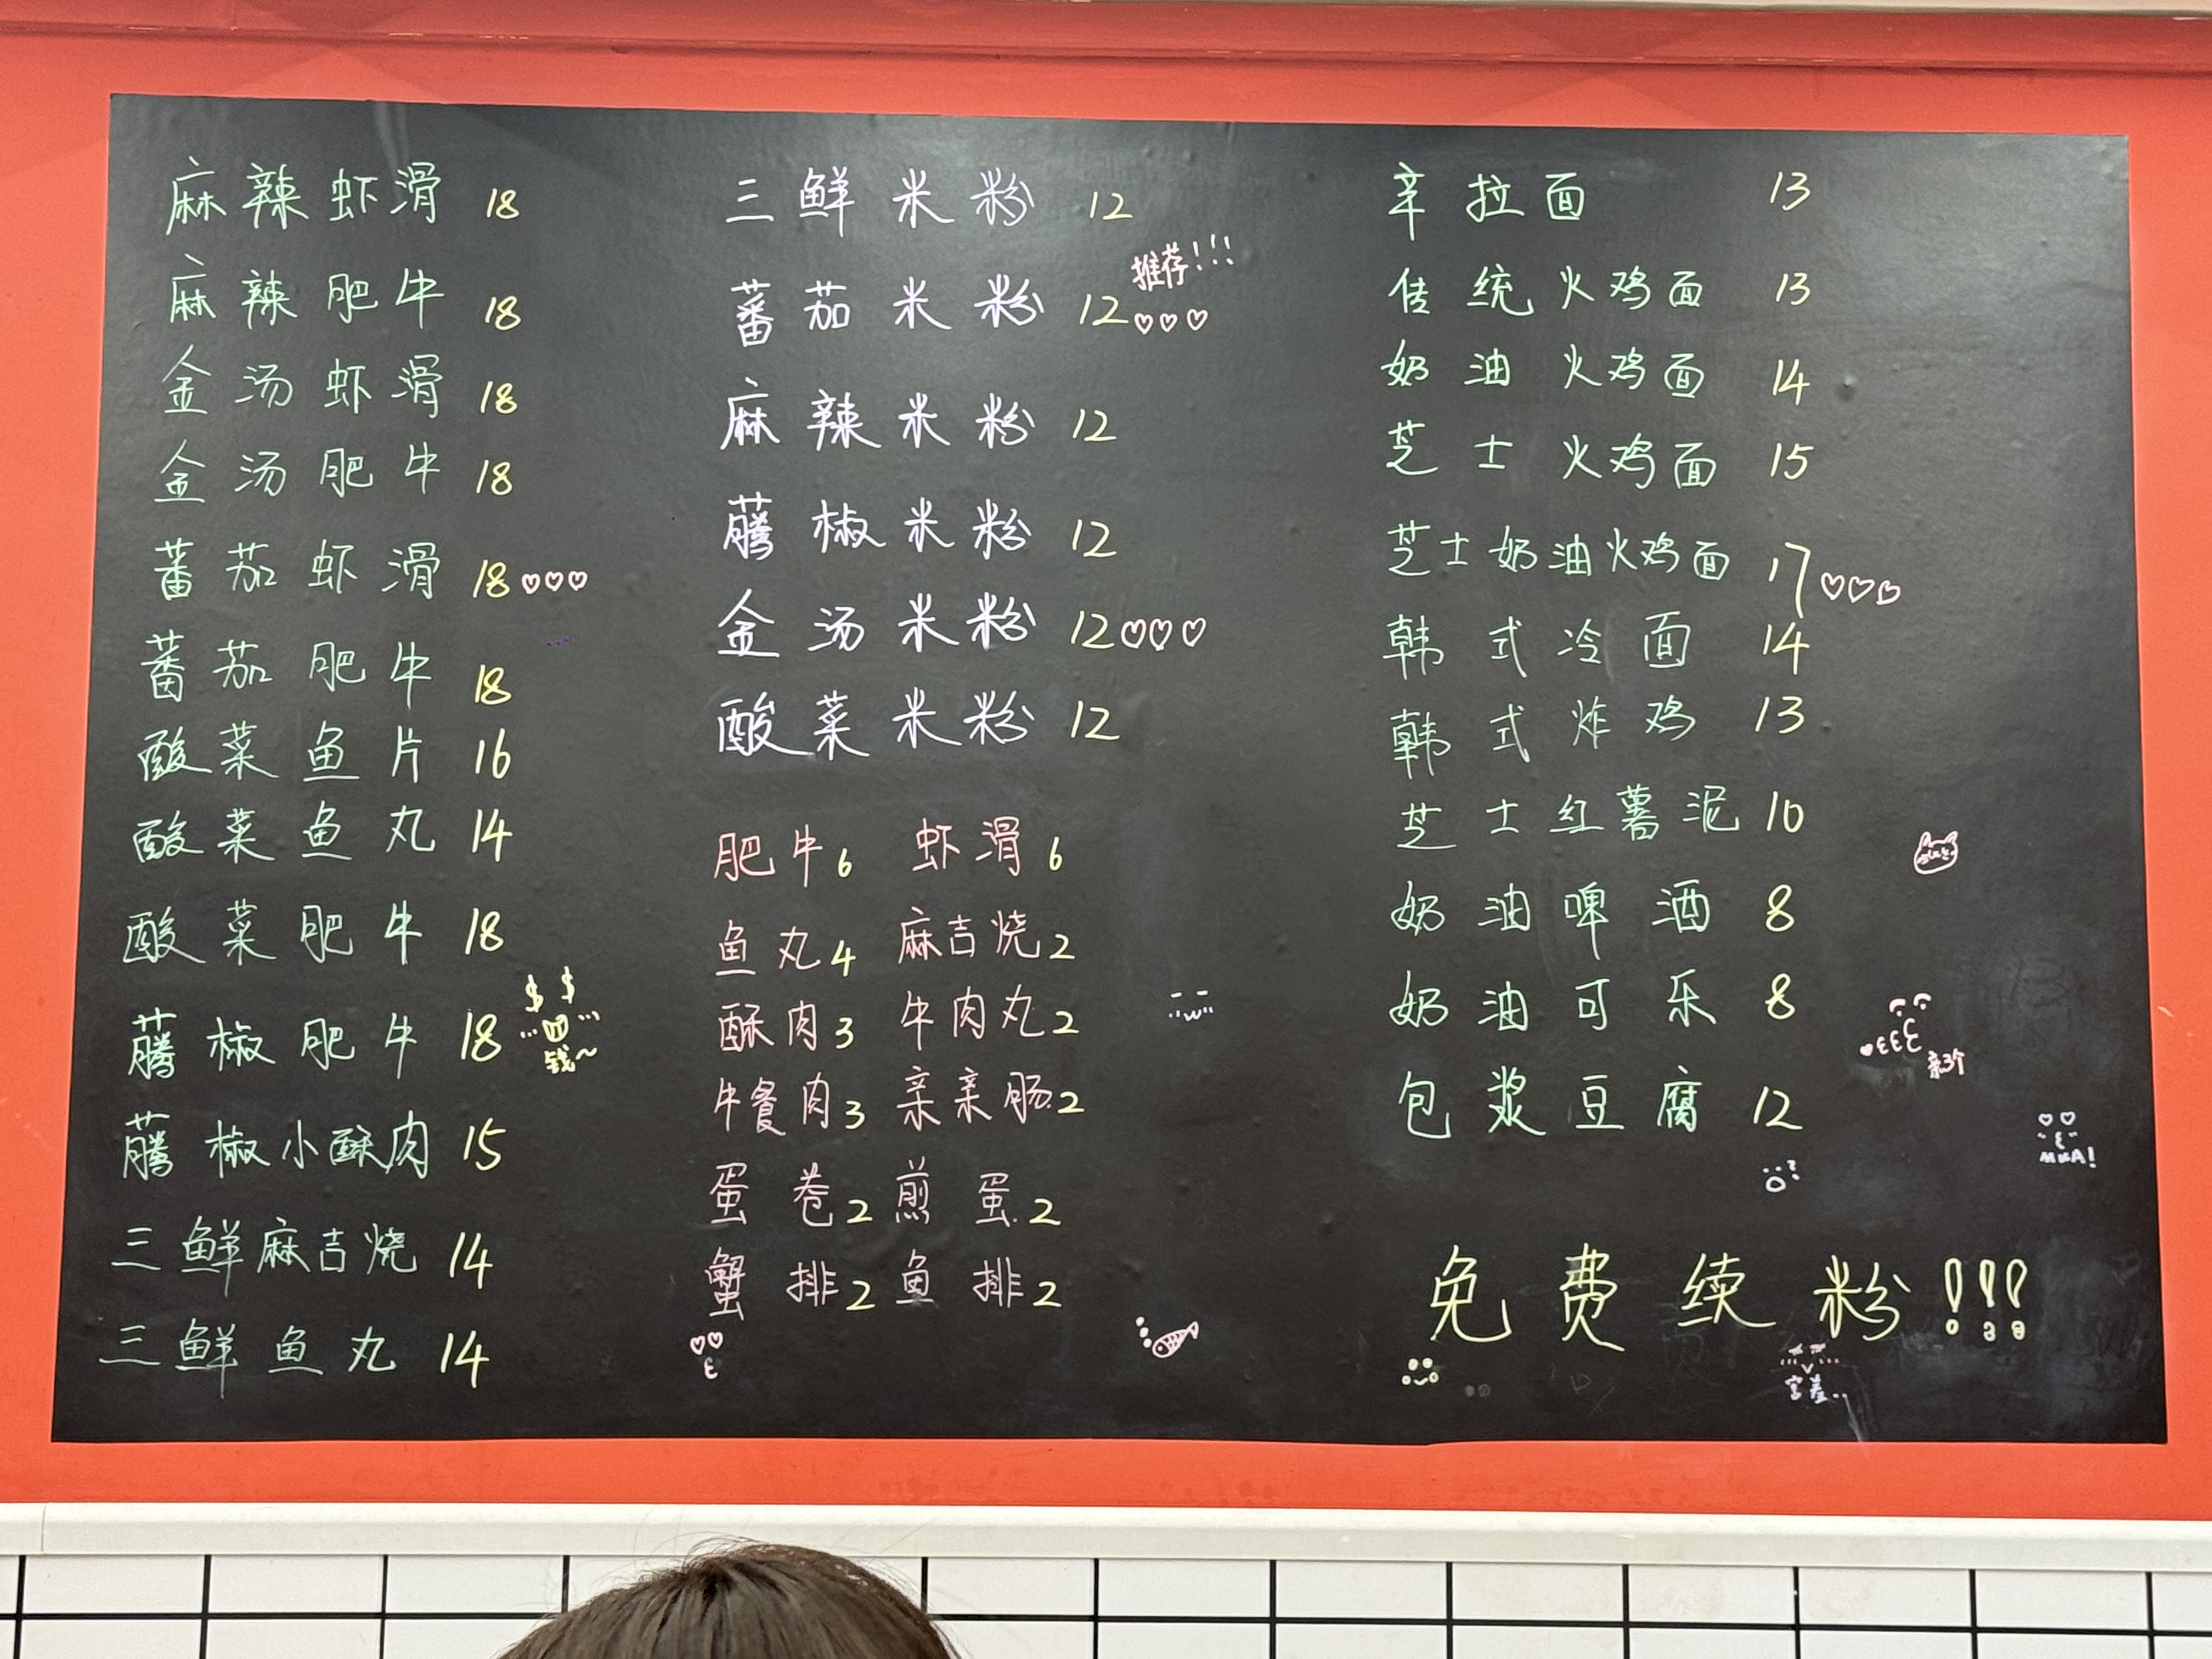 麻辣虾滑 18
麻辣肥牛 18
金汤虾滑 18
金汤肥牛 18
蕃茄虾滑 18
蕃茄肥牛 18
酸菜鱼片 16
酸菜鱼丸 14
酸菜肥牛 18
藤椒肥牛 18
$ $
钱~
藤椒小酥肉 15
三鲜麻吉烧 14
三鲜鱼丸 14
三鲜米粉 12
推荐!!!
蕃茄米粉 12
麻辣米粉 12
藤椒米粉 12
金汤米粉 12
酸菜米粉 12
肥牛6 虾滑6
鱼丸4 麻吉烧2
酥肉3 牛肉丸2
午餐肉3 亲亲肠2
蛋卷2 煎蛋2
蟹排2 鱼排2
辛拉面 13
传统火鸡面 13
奶油火鸡面 14
芝士火鸡面 15
芝士奶油火鸡面 17
韩式冷面 14
韩式炸鸡 13
芝士红薯泥 10
奶油啤酒 8
奶油可乐 8
亲3个
包浆豆腐 12
MUA!
免费续粉!!!
害羞..